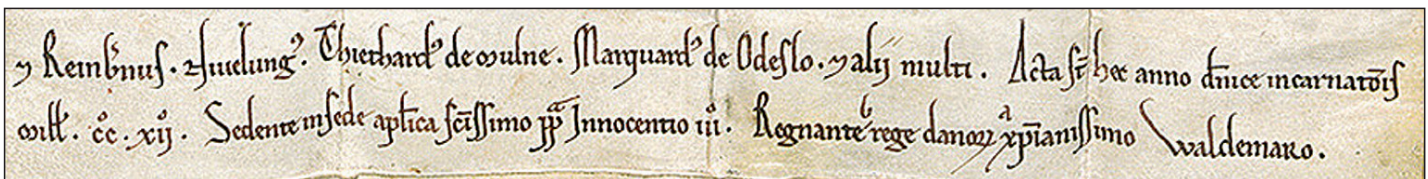 ⁊ Reinb̄nus. Huelungꝰ. Thiethardꝰ de mulne. Marquardꝰ de Odeslo. ⁊ alij multi. Acta st̄ hec anno dn̄ice incarnatōis
mill̄. c̊c. xij̊. Sedente in sede apl̄ica sc̄issimo pp̄ Innocentio iii̊. Regnante rege danoꝝ xp̄ianissimo Waldemaro.